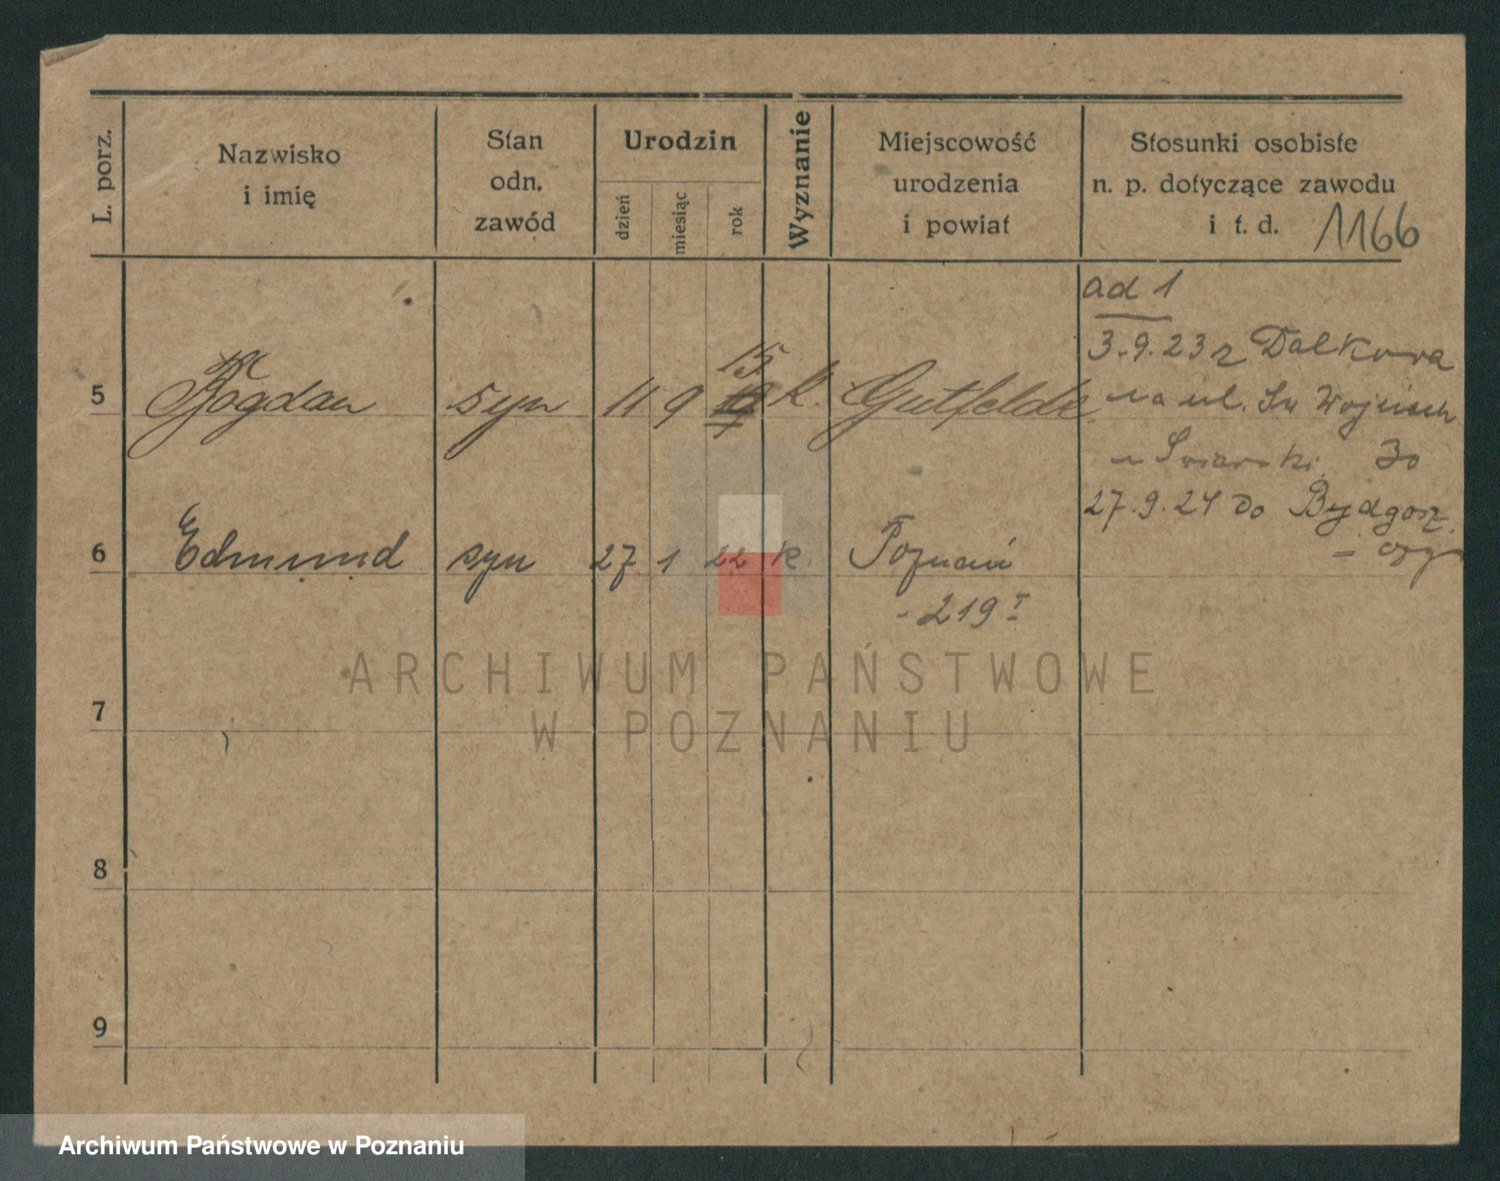 L. porz.
Nazwisko
i imię
Stan
odn.
zawód
Urodzin
dzień
miesiąc
rok
Wyznanie
Miejscowość
urodzenia
i powiat
Stosunki osobiste
n. p. dotyczące zawodu
i t. d. 1166
ad 1
3.9.23 z
na ul. Św Wojciech
30
27.9.24 do Bydgosz
15
5 Bogdan syn 11 9 k. Gutfelde
6 Edmund syn 27 1 22 k. Poznań
- 219 I
7
8
9
ARCHIWUM PAŃSTWOWE
W POZNANIU
Archiwum Państwowe w Poznaniu